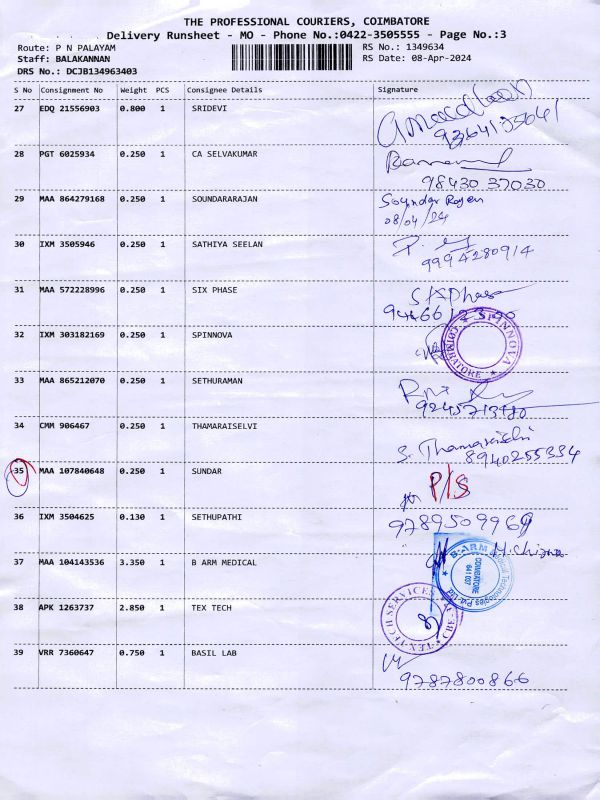 THE PROFESSIONAL COURIERS, COIMBATORE
Delivery Runsheet - MO - Phone No.:0422-3505555 - Page No.:3
Route: P N PALAYAM
RS No.: 1349634
Staff: BALAKANNAN
RS Date: 08-Apr-2024
DRS No.: DCJB134963403
S No Consignment No Weight PCS Consignee Details Signature
27 EDQ 21556903 0.800 1 SRIDEVI
28 PGT 6025934 0.250 1 CA SELVAKUMAR
98430 37030
29 MAA 864279168 0.250 1 SOUNDARARAJAN
Soundar Rajen
08/04/24
30 IXM 3505946 0.250 1 SATHIYA SEELAN
9994280914
31 MAA 572228996 0.250 1 SIX PHASE
SIXPhase
32 IXM 303182169 0.250 1 SPINNOVA
SPINNOVA
COIMBATORE
33 MAA 865212070 0.250 1 SETHURAMAN
34 CMM 906467 0.250 1 THAMARAISELVI
S. Thamaraiselvi
8940255334
35 MAA 107840648 0.250 1 SUNDAR
P/S
36 IXM 3504625 0.130 1 SETHUPATHI
9789509969
37 MAA 104143536 3.350 1 B ARM MEDICAL
B-ARM Technologies Pvt. Ltd.
COIMBATORE
641 037
38 APK 1263737 2.850 1 TEX TECH
TEX TECH SERVICES
CBE
39 VRR 7360647 0.750 1 BASIL LAB
9787800866